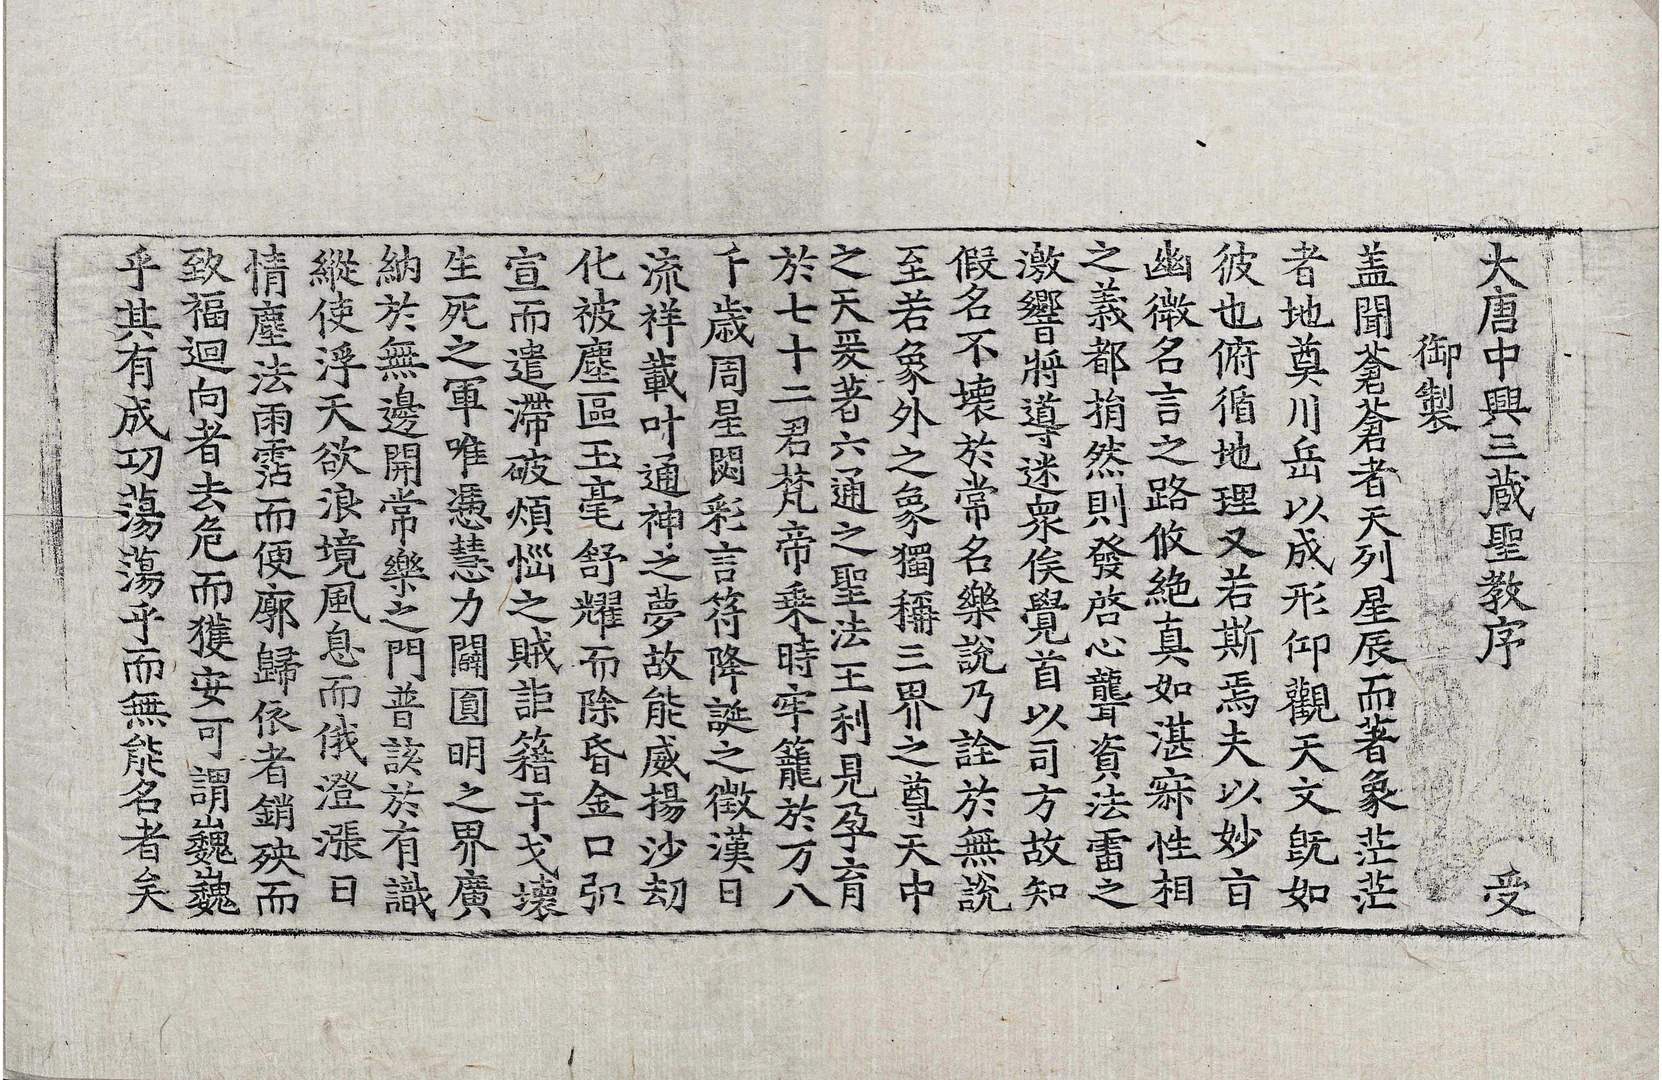 大唐中興三蔵聖教序　受
御製
盖聞蒼蒼者天列星辰而著象茫茫
者地奠川岳以成形仰觀天文旣如
彼也俯循地理又若斯焉夫以妙㫖
幽微名言之路攸絶真如湛寂性相
之義都捐然則發啓心聾資法雷之
激響將導迷衆俟覺首以司方故知
假名不壞於常名樂說乃詮於無說
至若象外之象獨稱三界之尊天中
之天爰著六通之聖法王利見孕育
於七十二君梵帝乘時牢籠於万八
千歳周星閟彩言符降誕之徵漢日
流祥載叶通神之夢故能威揚沙劫
化被塵區玉毫舒耀而除昏金口弘
宣而遣滯破煩惱之賊詎籍干戈壞
生死之軍唯憑慧力闢圓明之界廣
納於無邊開常樂之門普該於有識
縱使浮天欲浪境風息而俄澄漲日
情塵法雨霑而便廓歸依者銷殃而
致福迴向者去危而獲安可謂巍巍
乎其有成功蕩蕩乎而無能名者矣